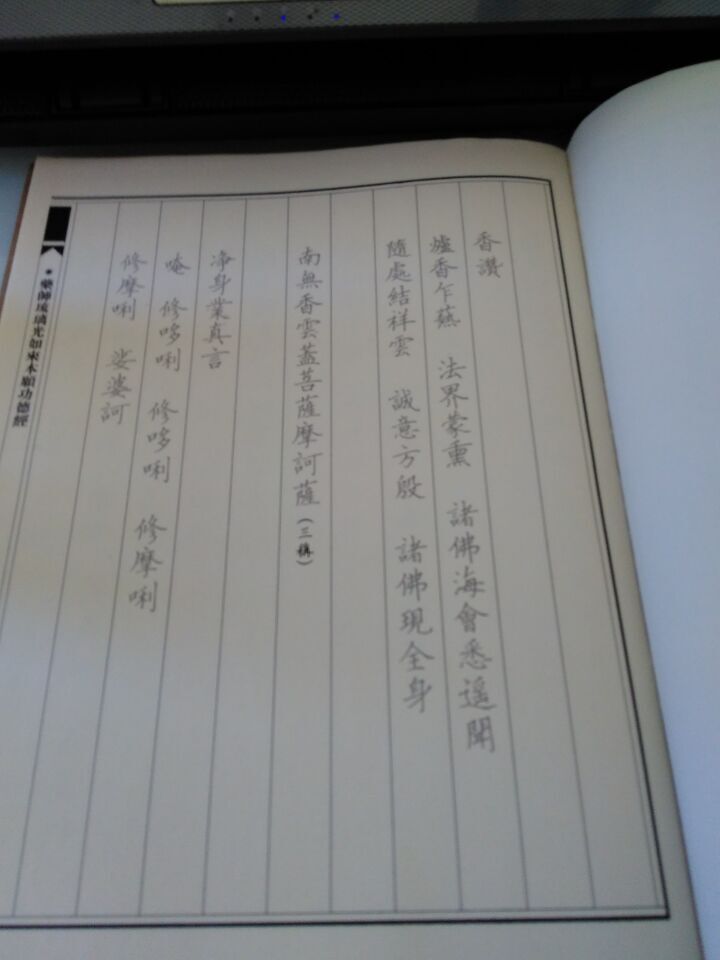 香讚
爐香乍爇　法界蒙熏　諸佛海會悉遙聞
隨處結祥雲　誠意方殷　諸佛現全身
南無香雲蓋菩薩摩訶薩(三稱)
淨身業真言
唵　修哆唎　修哆唎　修摩唎
修摩唎　娑婆訶
●藥師琉璃光如來本願功德經